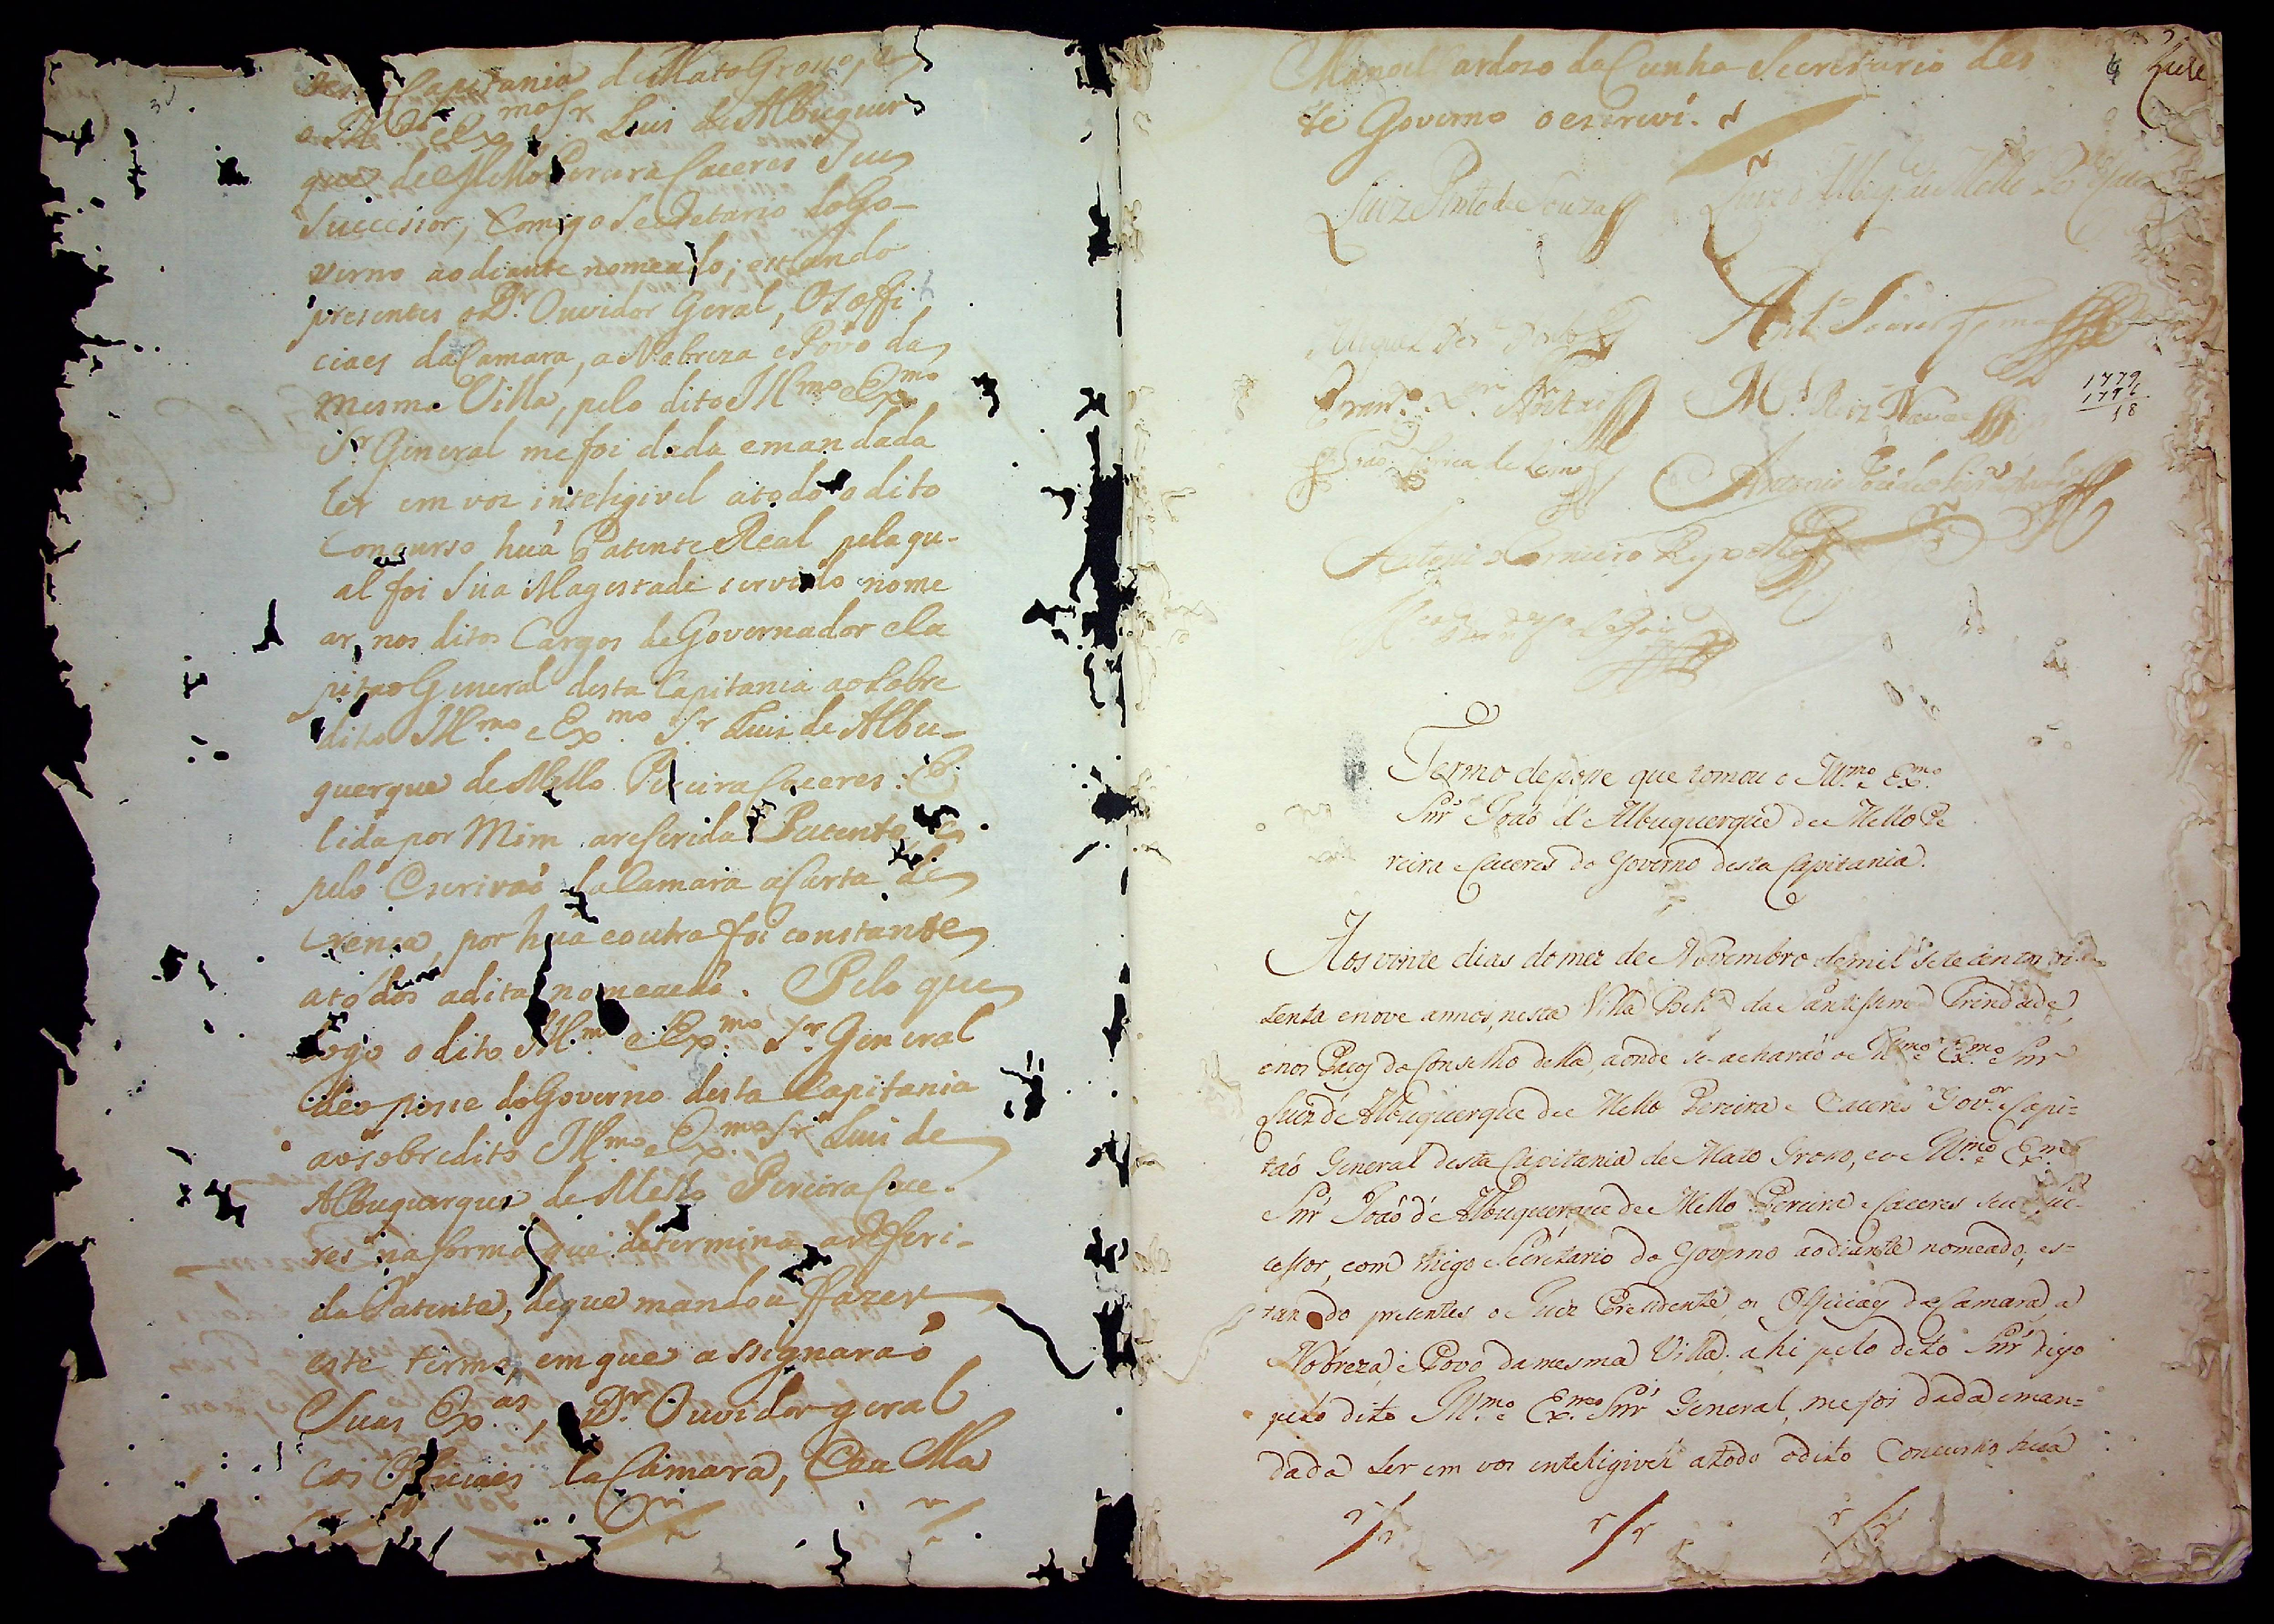 Capitania de Mato Groso, e
Luis de Albuquer
que de Mello Pereira Caceres Seu
Successor, Comigo Secretario do Go-
verno ao diante nomeado; estando
presentes o Dr. Ouvidor Geral, Os offi
ciaes da Camara, a Nobreza e Povo da
mesma Villa, pelo dito Illmo e Exmo
Sr General me foi dada e mandada
ler em voz inteligivel a todo o dito
Concurso huã Patente Real pela qu-
al foi Sua Magestade servido nome
ar, nos ditos Cargos de Governador e Ca
pitaõ General desta Capitania ao Sobre
dito Illmo e Exmo Sr Luis de Albu-
querque de Mello Pereira Caceres: E
lida por Mim a referida Patente e
pelo Escrivaõ da Camara a Carta de
crença, por huã e outra foi constante
a todos a dita nomeaçaõ. Pelo que
logo o dito Illmo e Exmo Sr General
deo posse do Governo desta Capitania
ao sobredito Illmo e Exmo Sr Luis de
Albuquerque de Mello Pereira Cace-
res na forma que determina a referi-
da Patente, de que mandou fazer
este termo, em que assignaraõ
Suas Exas, Dr Ouvidor geral
e os Officiaes da Camara, E eu Ma
Manoel Cardozo da Cunha Secretario des
te Governo o escrevi.
Luiz Pinto de Souza
Antonio Carneiro
1779
1796
18
Termo de posse que tomou o Illmo e Exmo
Snr Joaõ d'Albuquerque de Mello Pe
reira e Caceres do Governo desta Capitania.
Aos vinte dias do mez de Novembro de mil Sete centos oi-
tenta e nove annos, nesta Villa Bella da Santissima Trindade,
e nos Paços do Conselho della, aonde se acharaõ o Illmo e Exmo Snr
Luiz de Albuquerque de Mello Pereira e Caceres Govor e Capi=
taõ General desta Capitania de Mato Groso, e o Illmo e Exmo
Snr Joaõ d'Albuquerque de Mello Pereira e Caceres seu Suc-
cessor, com migo Secretario do Governo ao diante nomeado, es=
tando presentes o Juiz Prezidente, os Officiaes da Camara, a
Nobreza e Povo da mesma Villa. ahi pelo dito Snr digo
pelo dito Illmo e Exmo Snr General, me foi dada e man=
dada Ler em voz inteligivel a todo o dito Concurso huã